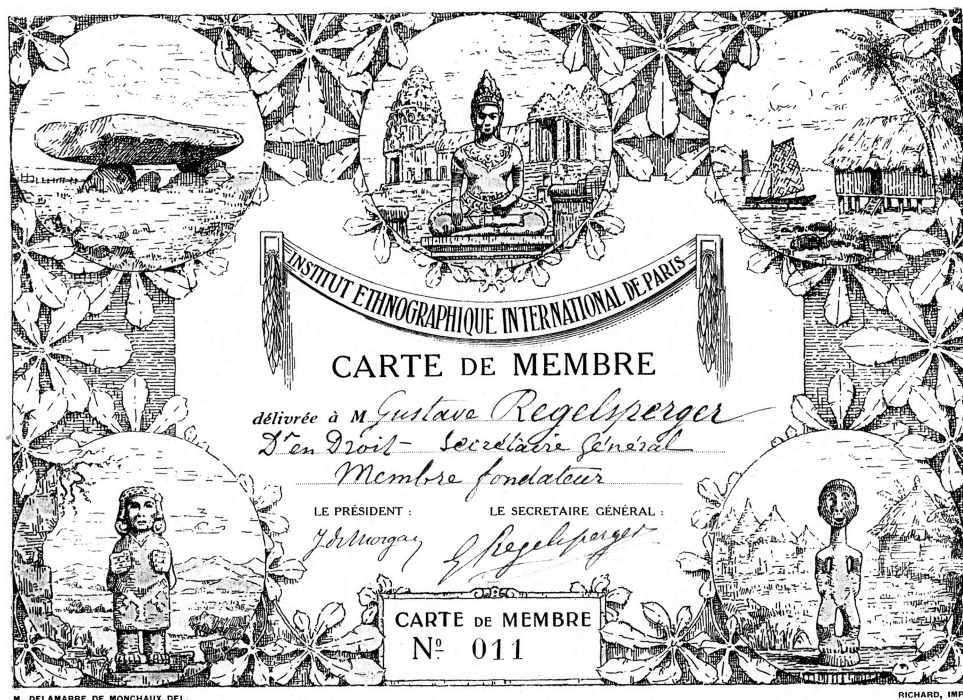 INSTITUT ETHNOGRAPHIQUE INTERNATIONAL DE PARIS
CARTE DE MEMBRE
délivrée à M Gustave Regelsperger
Dr en Droit - Secrétaire Général
Membre fondateur
LE PRÉSIDENT : LE SECRETAIRE GÉNÉRAL :
J de Morgan G Regelsperger
CARTE DE MEMBRE
Nº 011
M. DELAMARRE DE MONCHAUX DEL. RICHARD, IMP